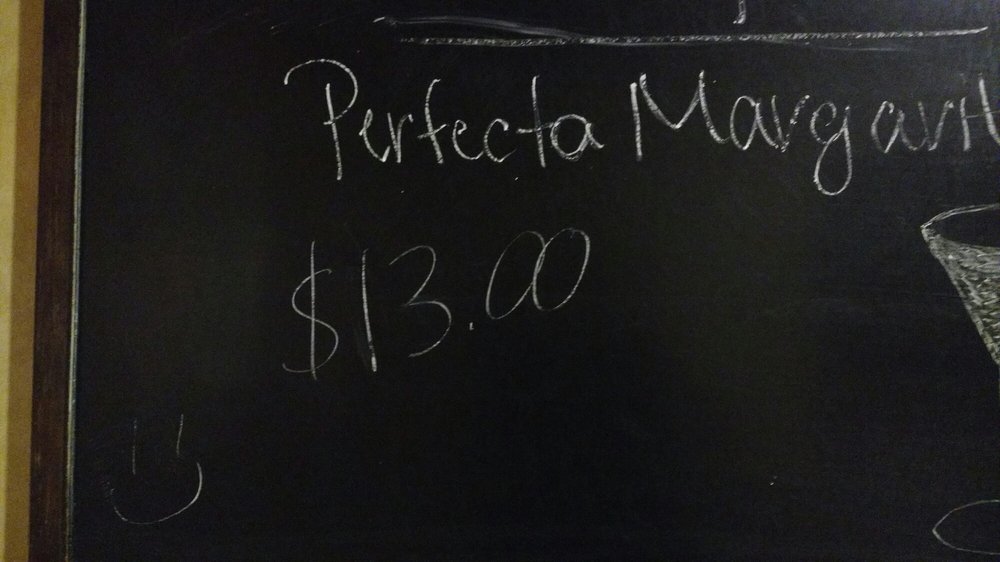 Perfecta Margarit
$13.00